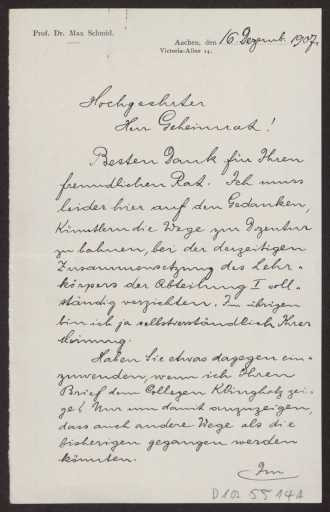 Prof. Dr. Max Schmid.
Aachen, den 16. Dezemb. 1907.
Victoria-Allee 14.
Hochgeehrter
Herr Geheimrat!
Besten Dank für Ihren
freundlichen Rat. Ich muss
leider hier auf den Gedanken,
Künstlern die Wege zur Dozentur
zu bahnen, bei der derzeitigen
Zusammensetzung des Lehr-
körpers der Abteilung I voll-
ständig verzichten. Im übrigen
bin ich ja selbstverständlich Ihrer
Meinung.
Haben Sie etwas dagegen ein-
zuwenden, wenn ich Ihren
Brief dem Collegen Klingholz zei-
ge? Nur um damit anzuzeigen,
dass auch andere Wege als die
bisherigen gegangen werden
könnten.
Im